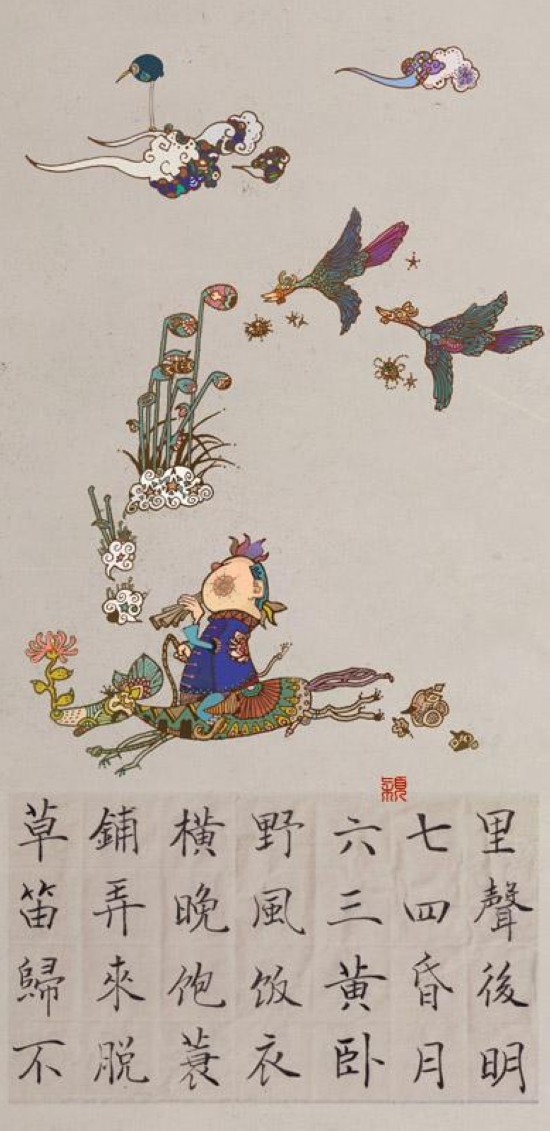 草鋪橫野六七里
笛弄晚風三四聲
歸來饱饭黄昏後
不脱蓑衣卧月明